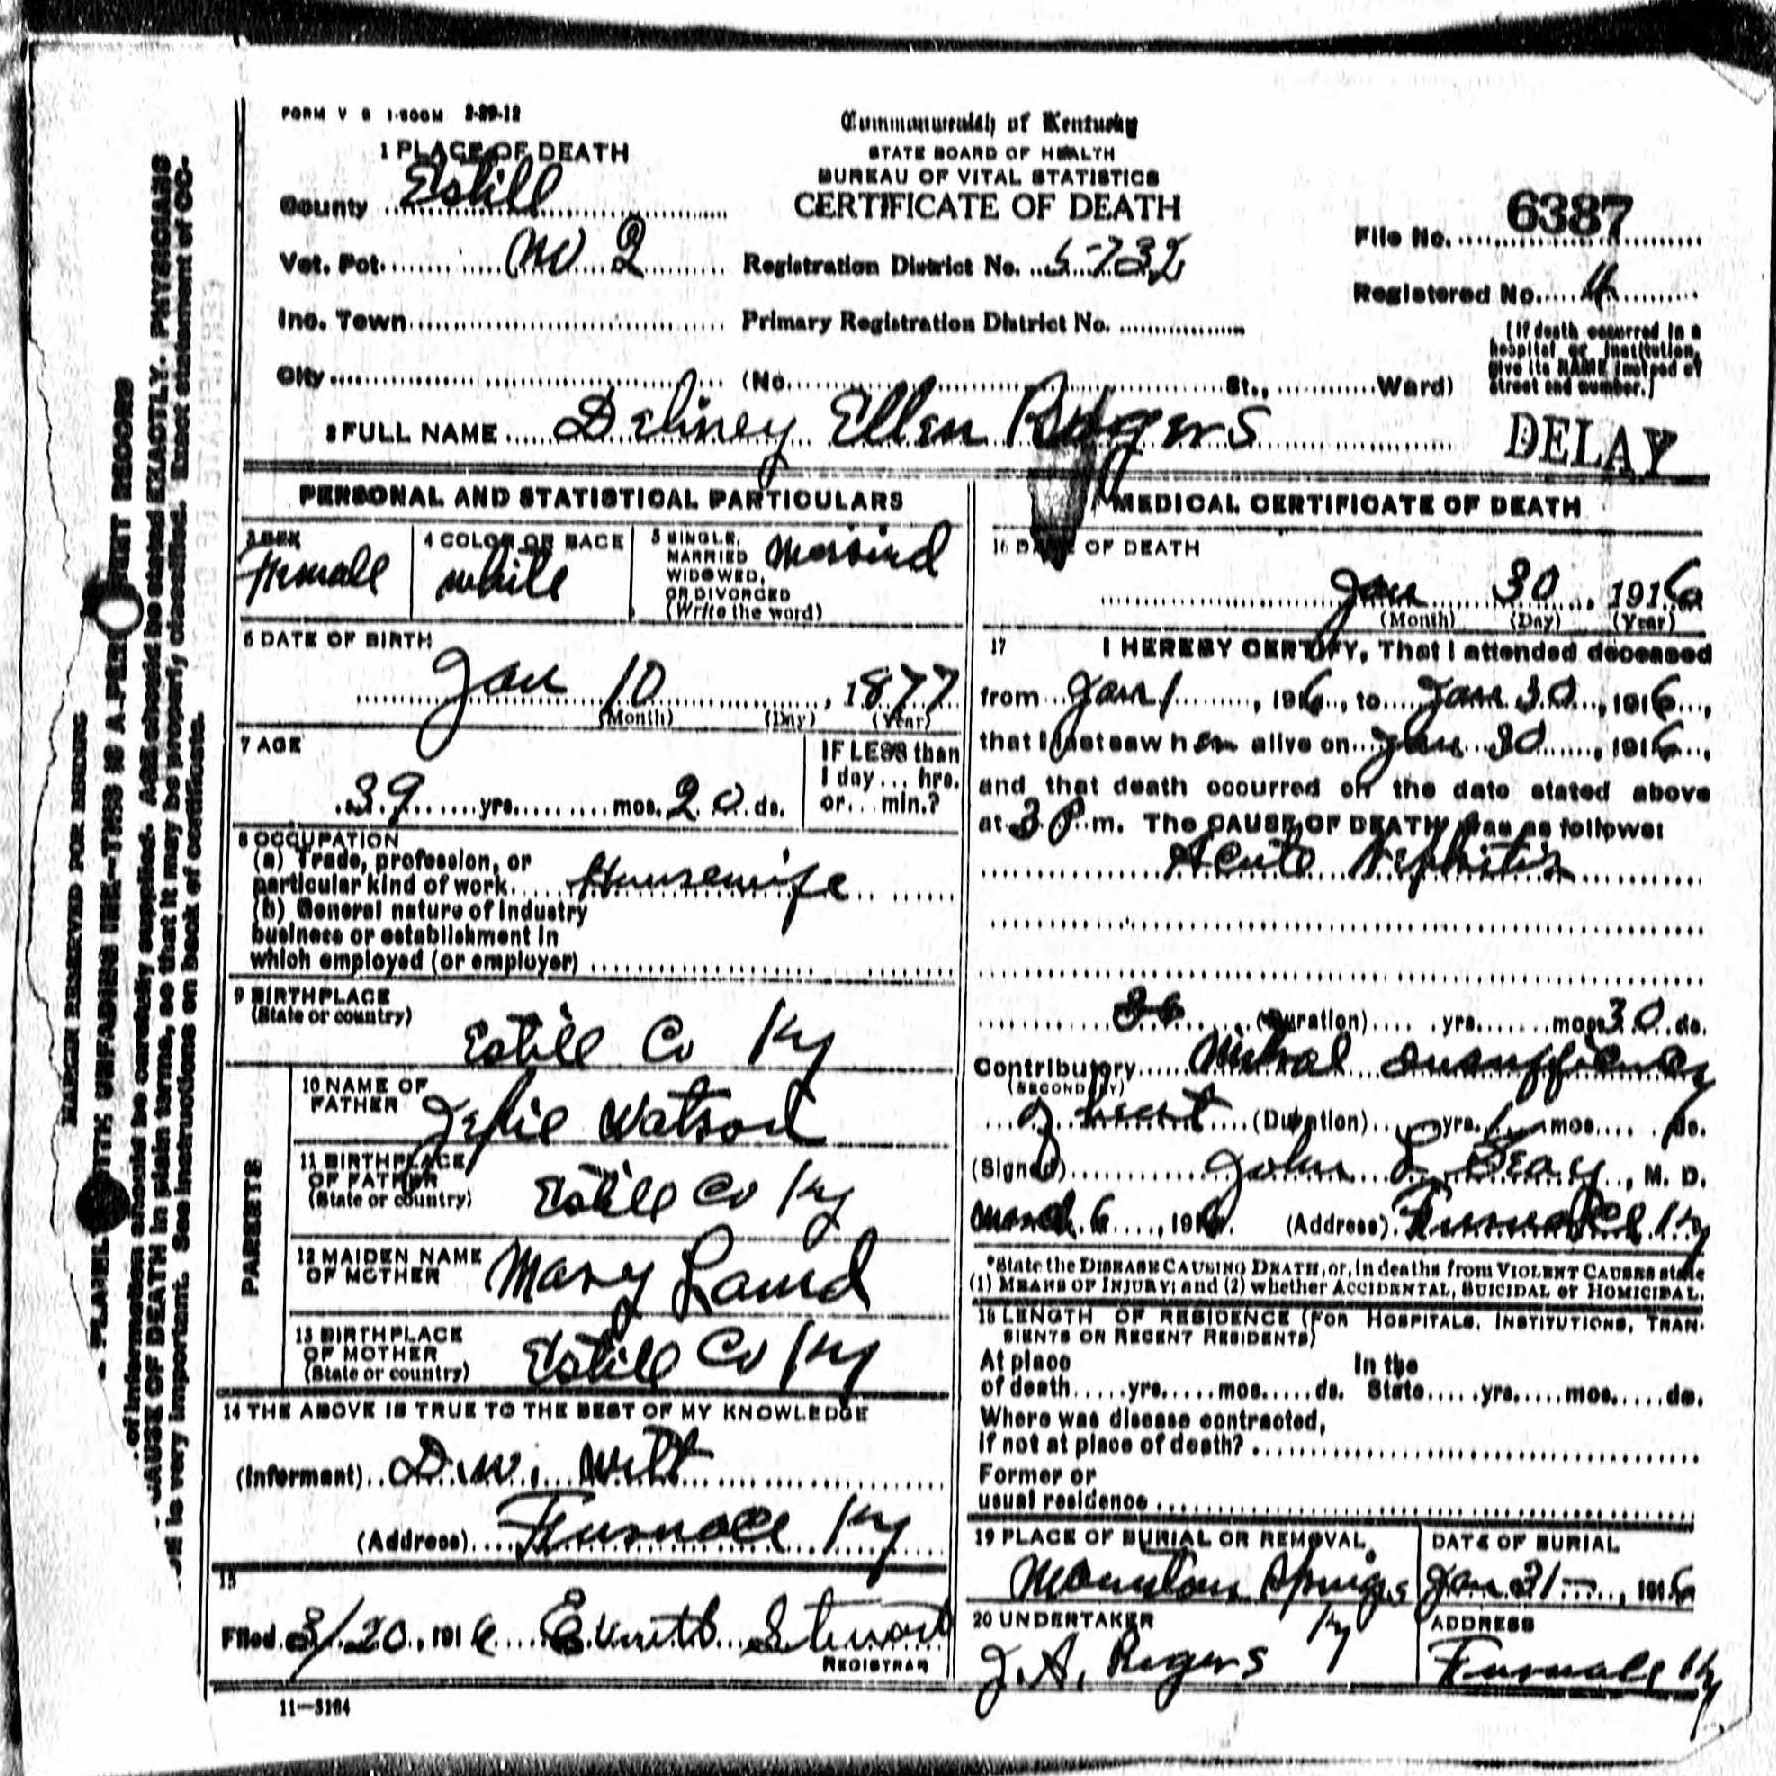 FORM V S 1-500M 2-29-12
Commonwealth of Kentucky
STATE BOARD OF HEALTH
BUREAU OF VITAL STATISTICS
CERTIFICATE OF DEATH
1 PLACE OF DEATH
County Estill
Vot. Pct. No 2
Registration District No. 5732
Inc. Town
Primary Registration District No.
City
(No. St., Ward)
File No. 6387
Registered No. 4
(If death occurred in a
hospital or institution,
give its NAME instead of
street and number.)
2 FULL NAME Deliney Ellen Rogers
DELAY
PERSONAL AND STATISTICAL PARTICULARS
3 SEX
Female
4 COLOR OR RACE
white
5 SINGLE,
MARRIED
WIDOWED,
OR DIVORCED
(Write the word)
Married
6 DATE OF BIRTH
Jan 10, 1877
(Month) (Day) (Year)
7 AGE
39 yrs. mos. 20 ds.
IF LESS than
1 day ... hrs.
or ... min.?
8 OCCUPATION
(a) Trade, profession, or
particular kind of work Housewife
(b) General nature of industry
business or establishment in
which employed (or employer)
9 BIRTHPLACE
(State or country)
Estill Co Ky
PARENTS
10 NAME OF
FATHER
Watson
11 BIRTHPLACE
OF FATHER
(State or country)
Estill Co Ky
12 MAIDEN NAME
OF MOTHER
Mary
13 BIRTHPLACE
OF MOTHER
(State or country)
Estill Co Ky
14 THE ABOVE IS TRUE TO THE BEST OF MY KNOWLEDGE
(Informant) D.W. Witt
(Address) Furnace Ky
15
Filed 3/20, 1916 Stewart
REGISTRAR
11-3184
MEDICAL CERTIFICATE OF DEATH
16 DATE OF DEATH
Jan 30, 1916
(Month) (Day) (Year)
17 I HEREBY CERTIFY, That I attended deceased
from Jan 1, 1916, to Jan 30, 1916,
that I last saw her alive on Jan 30, 1916,
and that death occurred on the date stated above
at 3 P. m. The CAUSE OF DEATH was as follows:
Acute Nephritis
(Duration) yrs. mos. 30 ds.
Contributory Mitral Insufficiency
(SECONDARY)
of heart (Duration) yrs. mos. ds.
(Signed) John, M. D.
March 6, 1916 (Address) Furnace Ky
*State the DISEASE CAUSING DEATH, or, in deaths from VIOLENT CAUSES state
(1) MEANS OF INJURY; and (2) whether ACCIDENTAL, SUICIDAL or HOMICIDAL.
18 LENGTH OF RESIDENCE (FOR HOSPITALS, INSTITUTIONS, TRAN-
SIENTS OR RECENT RESIDENTS)
At place
of death yrs. mos. ds.
In the
State yrs. mos. ds.
Where was disease contracted,
if not at place of death?
Former or
usual residence
19 PLACE OF BURIAL OR REMOVAL
Mountain Springs Ky
DATE OF BURIAL
Jan 31, 1916
20 UNDERTAKER
J.A. Rogers
ADDRESS
Furnace Ky
MARGIN RESERVED FOR BINDING
PLAINLY WITH UNFADING INK-THIS IS A PERMANENT RECORD
of information should be carefully supplied. AGE should be stated EXACTLY. PHYSICIANS
CAUSE OF DEATH in plain terms, so that it may be properly classified. Exact statement of OC-
is very important. See instructions on back of certificate.